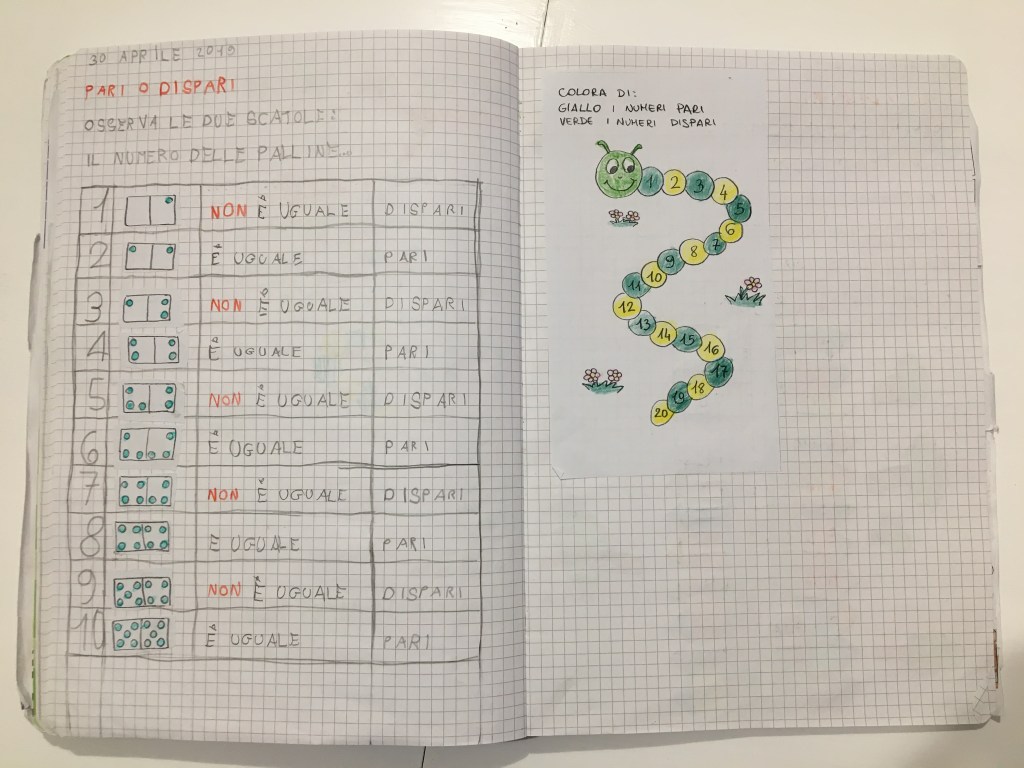 30 APRILE 2019
PARI O DISPARI
OSSERVA LE DUE SCATOLE:
IL NUMERO DELLE PALLINE...
1 NON È UGUALE DISPARI
2 È UGUALE PARI
3 NON È UGUALE DISPARI
4 È UGUALE PARI
5 NON È UGUALE DISPARI
6 È UGUALE PARI
7 NON È UGUALE DISPARI
8 E UGUALE PARI
9 NON È UGUALE DISPARI
10 È UGUALE PARI
COLORA DI:
GIALLO I NUMERI PARI
VERDE I NUMERI DISPARI
1 2 3 4
5
6
7
8
9
10
11
12
13
14
15
16
17
18
19
20